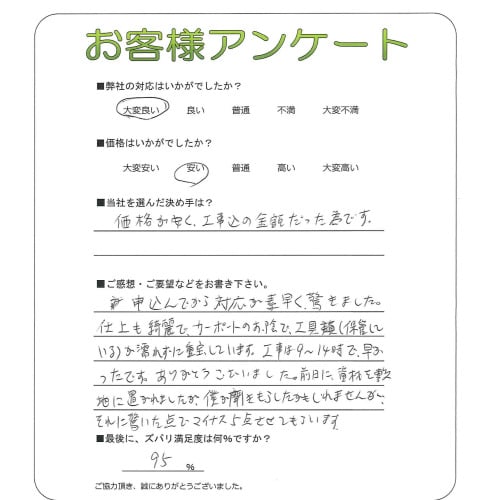 お客様アンケート
■弊社の対応はいかがでしたか?
大変良い 良い 普通 不満 大変不満
■価格はいかがでしたか?
大変安い 安い 普通 高い 大変高い
■当社を選んだ決め手は?
価格が安く、工事込の金額だった為です。
■ご感想・ご要望などをお書き下さい。
申込んでから対応が素早く、驚きました。
仕上も綺麗で、カーポートのお陰で、工具類(保管して
いる)が濡れずに重宝しています。工事は9〜14時で、早か
ったです。ありがとうございました。前日に、資材を敷
地に置かれましたが、僕が聞きもらしたかもしれませんが、
それに驚いた点でマイナス5点させてもらいます
■最後に、ズバリ満足度は何%ですか?
95 %
ご協力頂き、誠にありがとうございました。